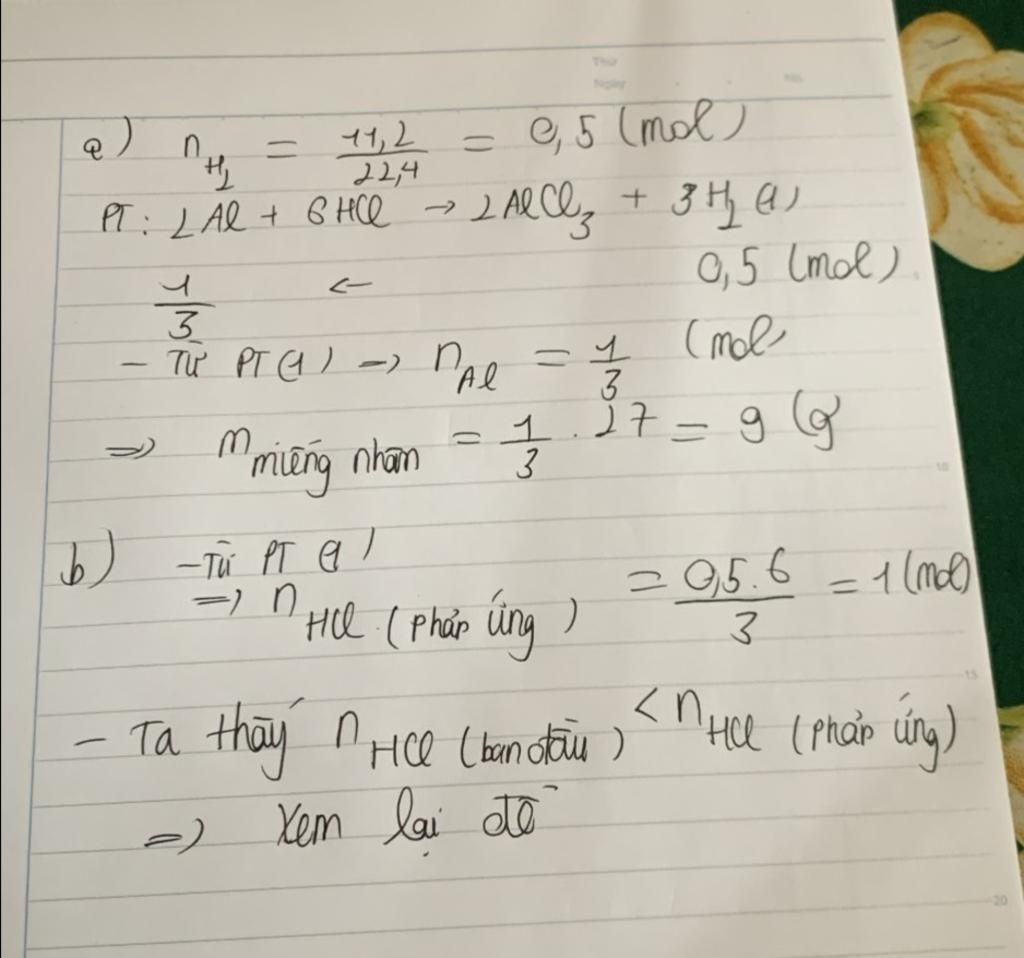 Thứ
Ngày No.
a) n_H₂ = 11,2/22,4 = 0,5 (mol)
PT : 2Al + 6HCl → 2AlCl₃ + 3H₂ (1)
1/3 ← 0,5 (mol)
- Từ PT (1) → n_Al = 1/3 (mol)
=> m_miếng nhôm = 1/3 . 27 = 9 (g)
10
b) - Từ PT (1)
=> n_HCl (phản ứng) = 0,5.6/3 = 1 (mol)
15
- Ta thấy n_HCl (ban đầu) < n_HCl (phản ứng)
=> Xem lại đề
20